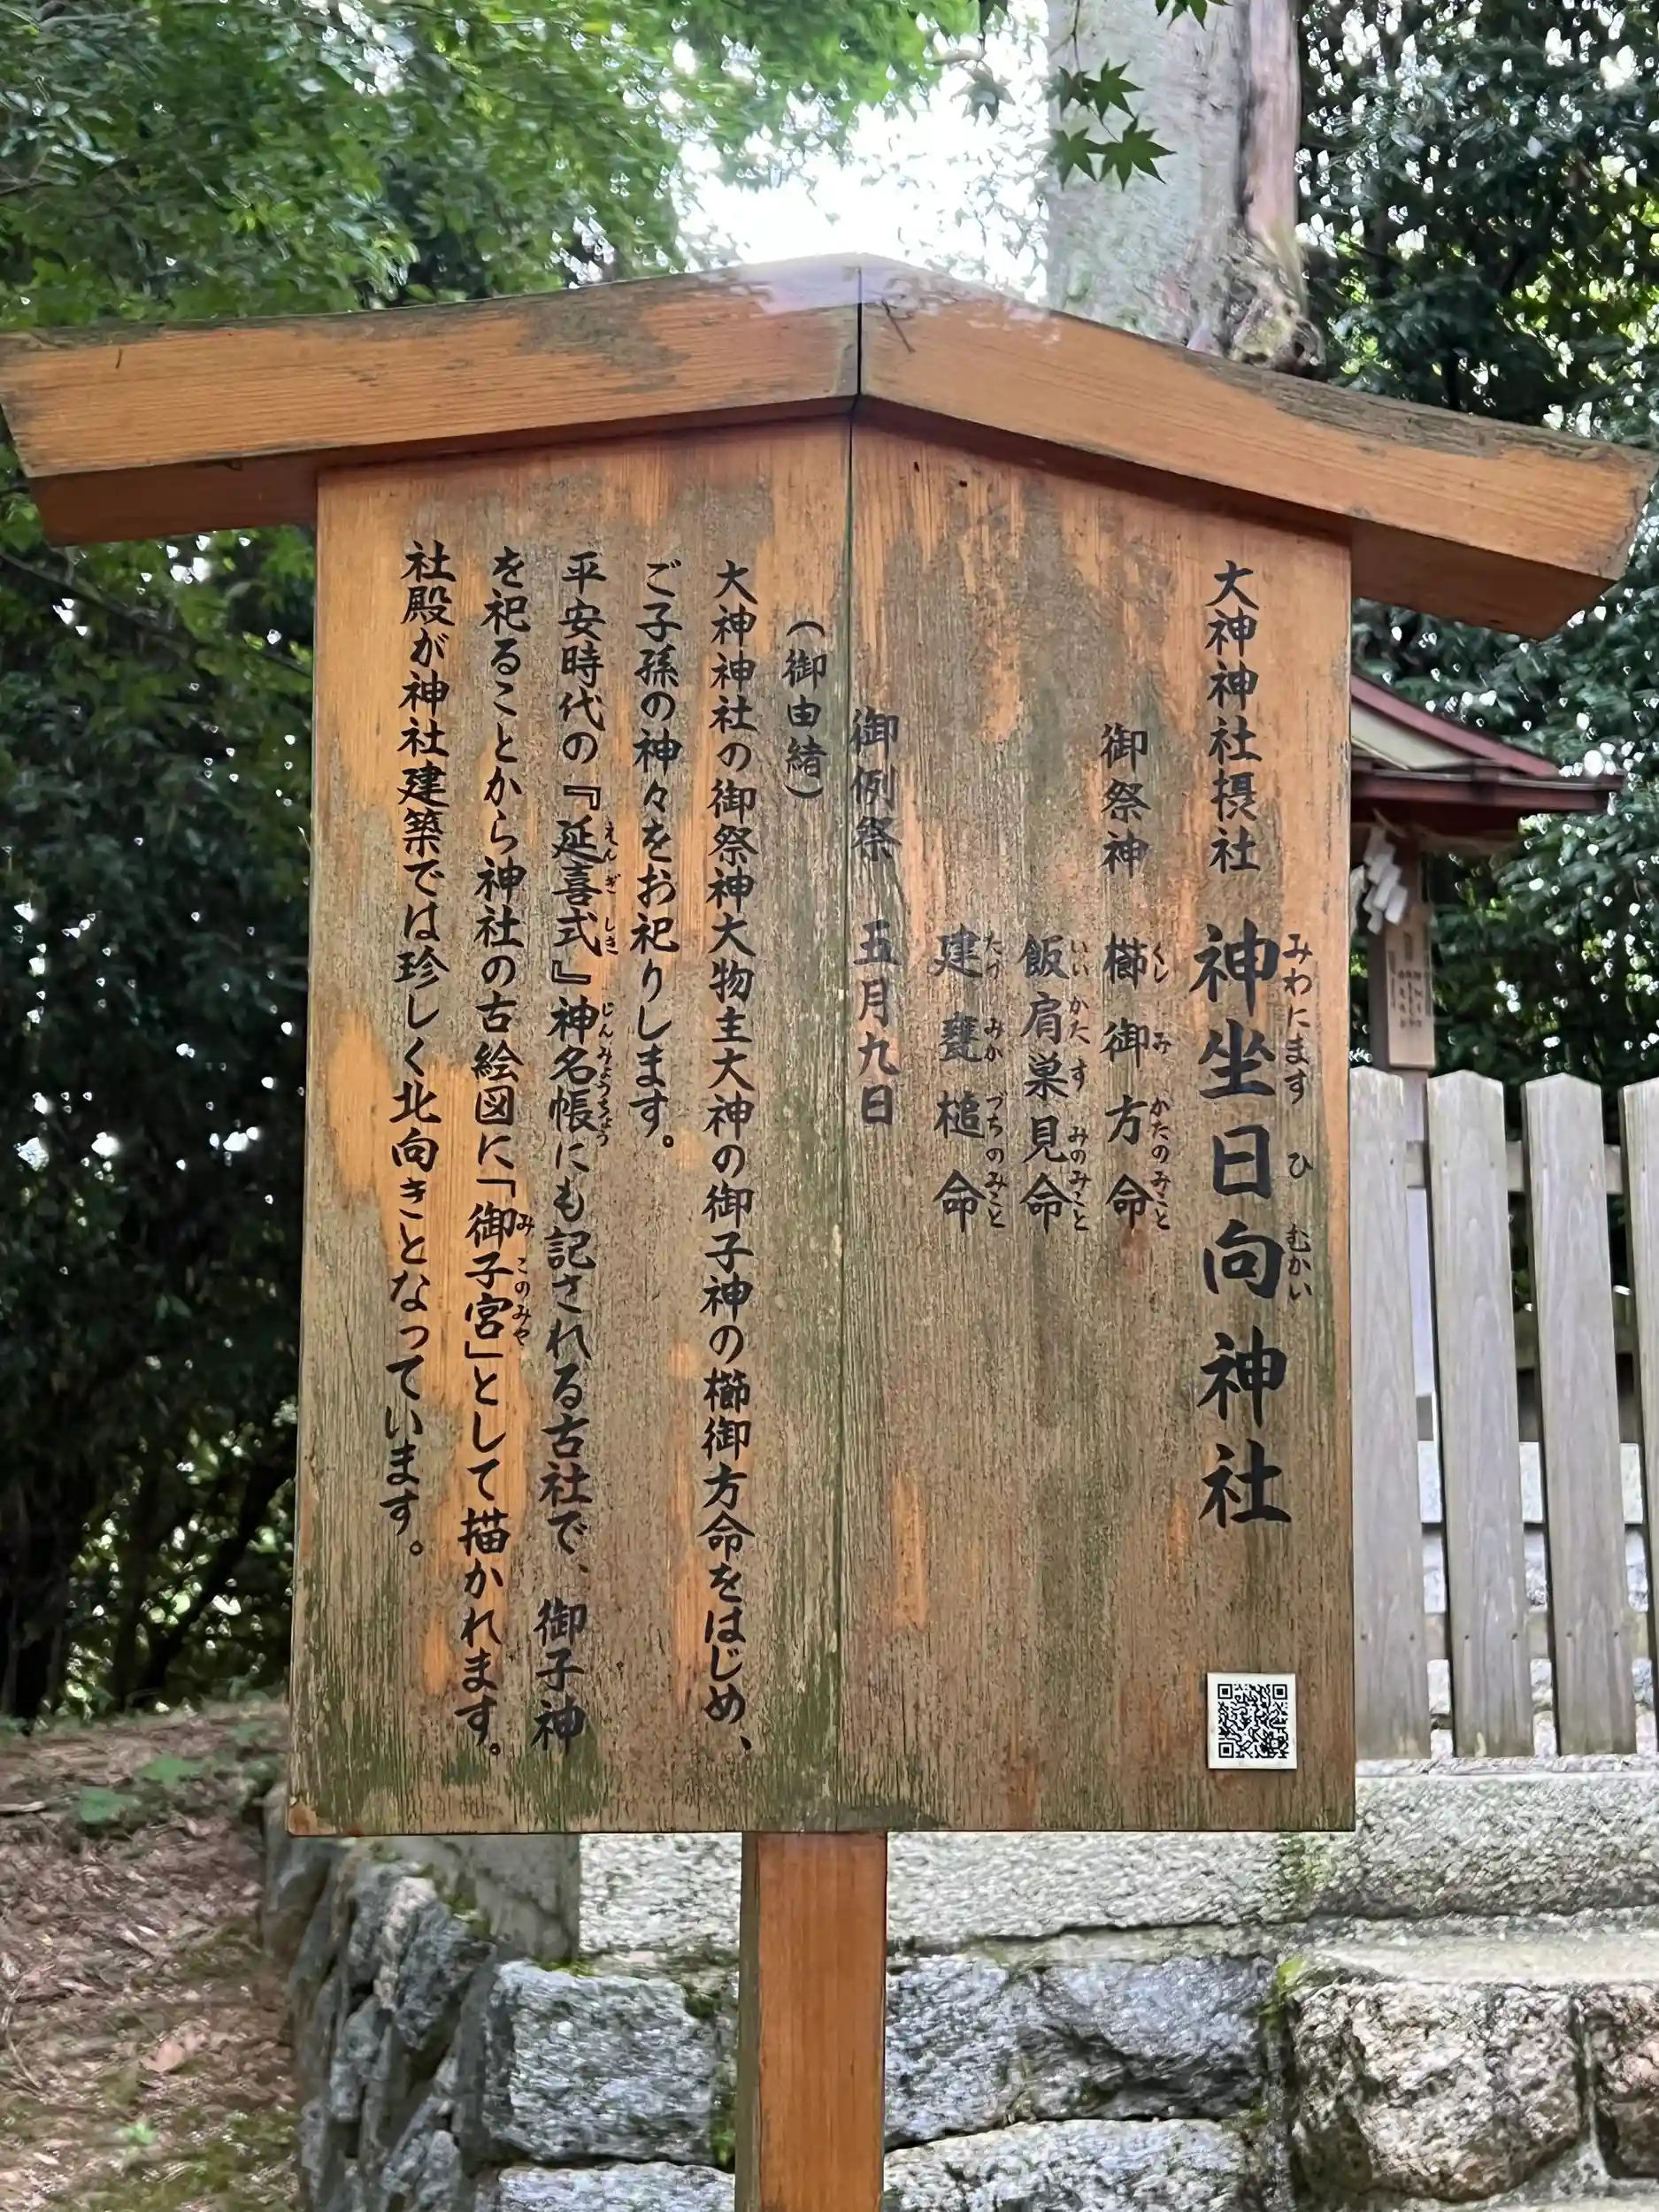 大神神社摂社 神坐日向神社
みわにます ひ むかい
御祭神 櫛御方命
くし み かたのみこと
飯肩巣見命
いい かた す みのみこと
建甕槌命
たけ みか づちのみこと
御例祭 五月九日
(御由緒)
大神神社の御祭神大物主大神の御子神の櫛御方命をはじめ、
ご子孫の神々をお祀りします。
平安時代の『延喜式』神名帳にも記される古社で、御子神
えん ぎ しき じんみょうちょう
を祀ることから神社の古絵図に「御子宮」として描かれます。
み このみや
社殿が神社建築では珍しく北向きとなっています。